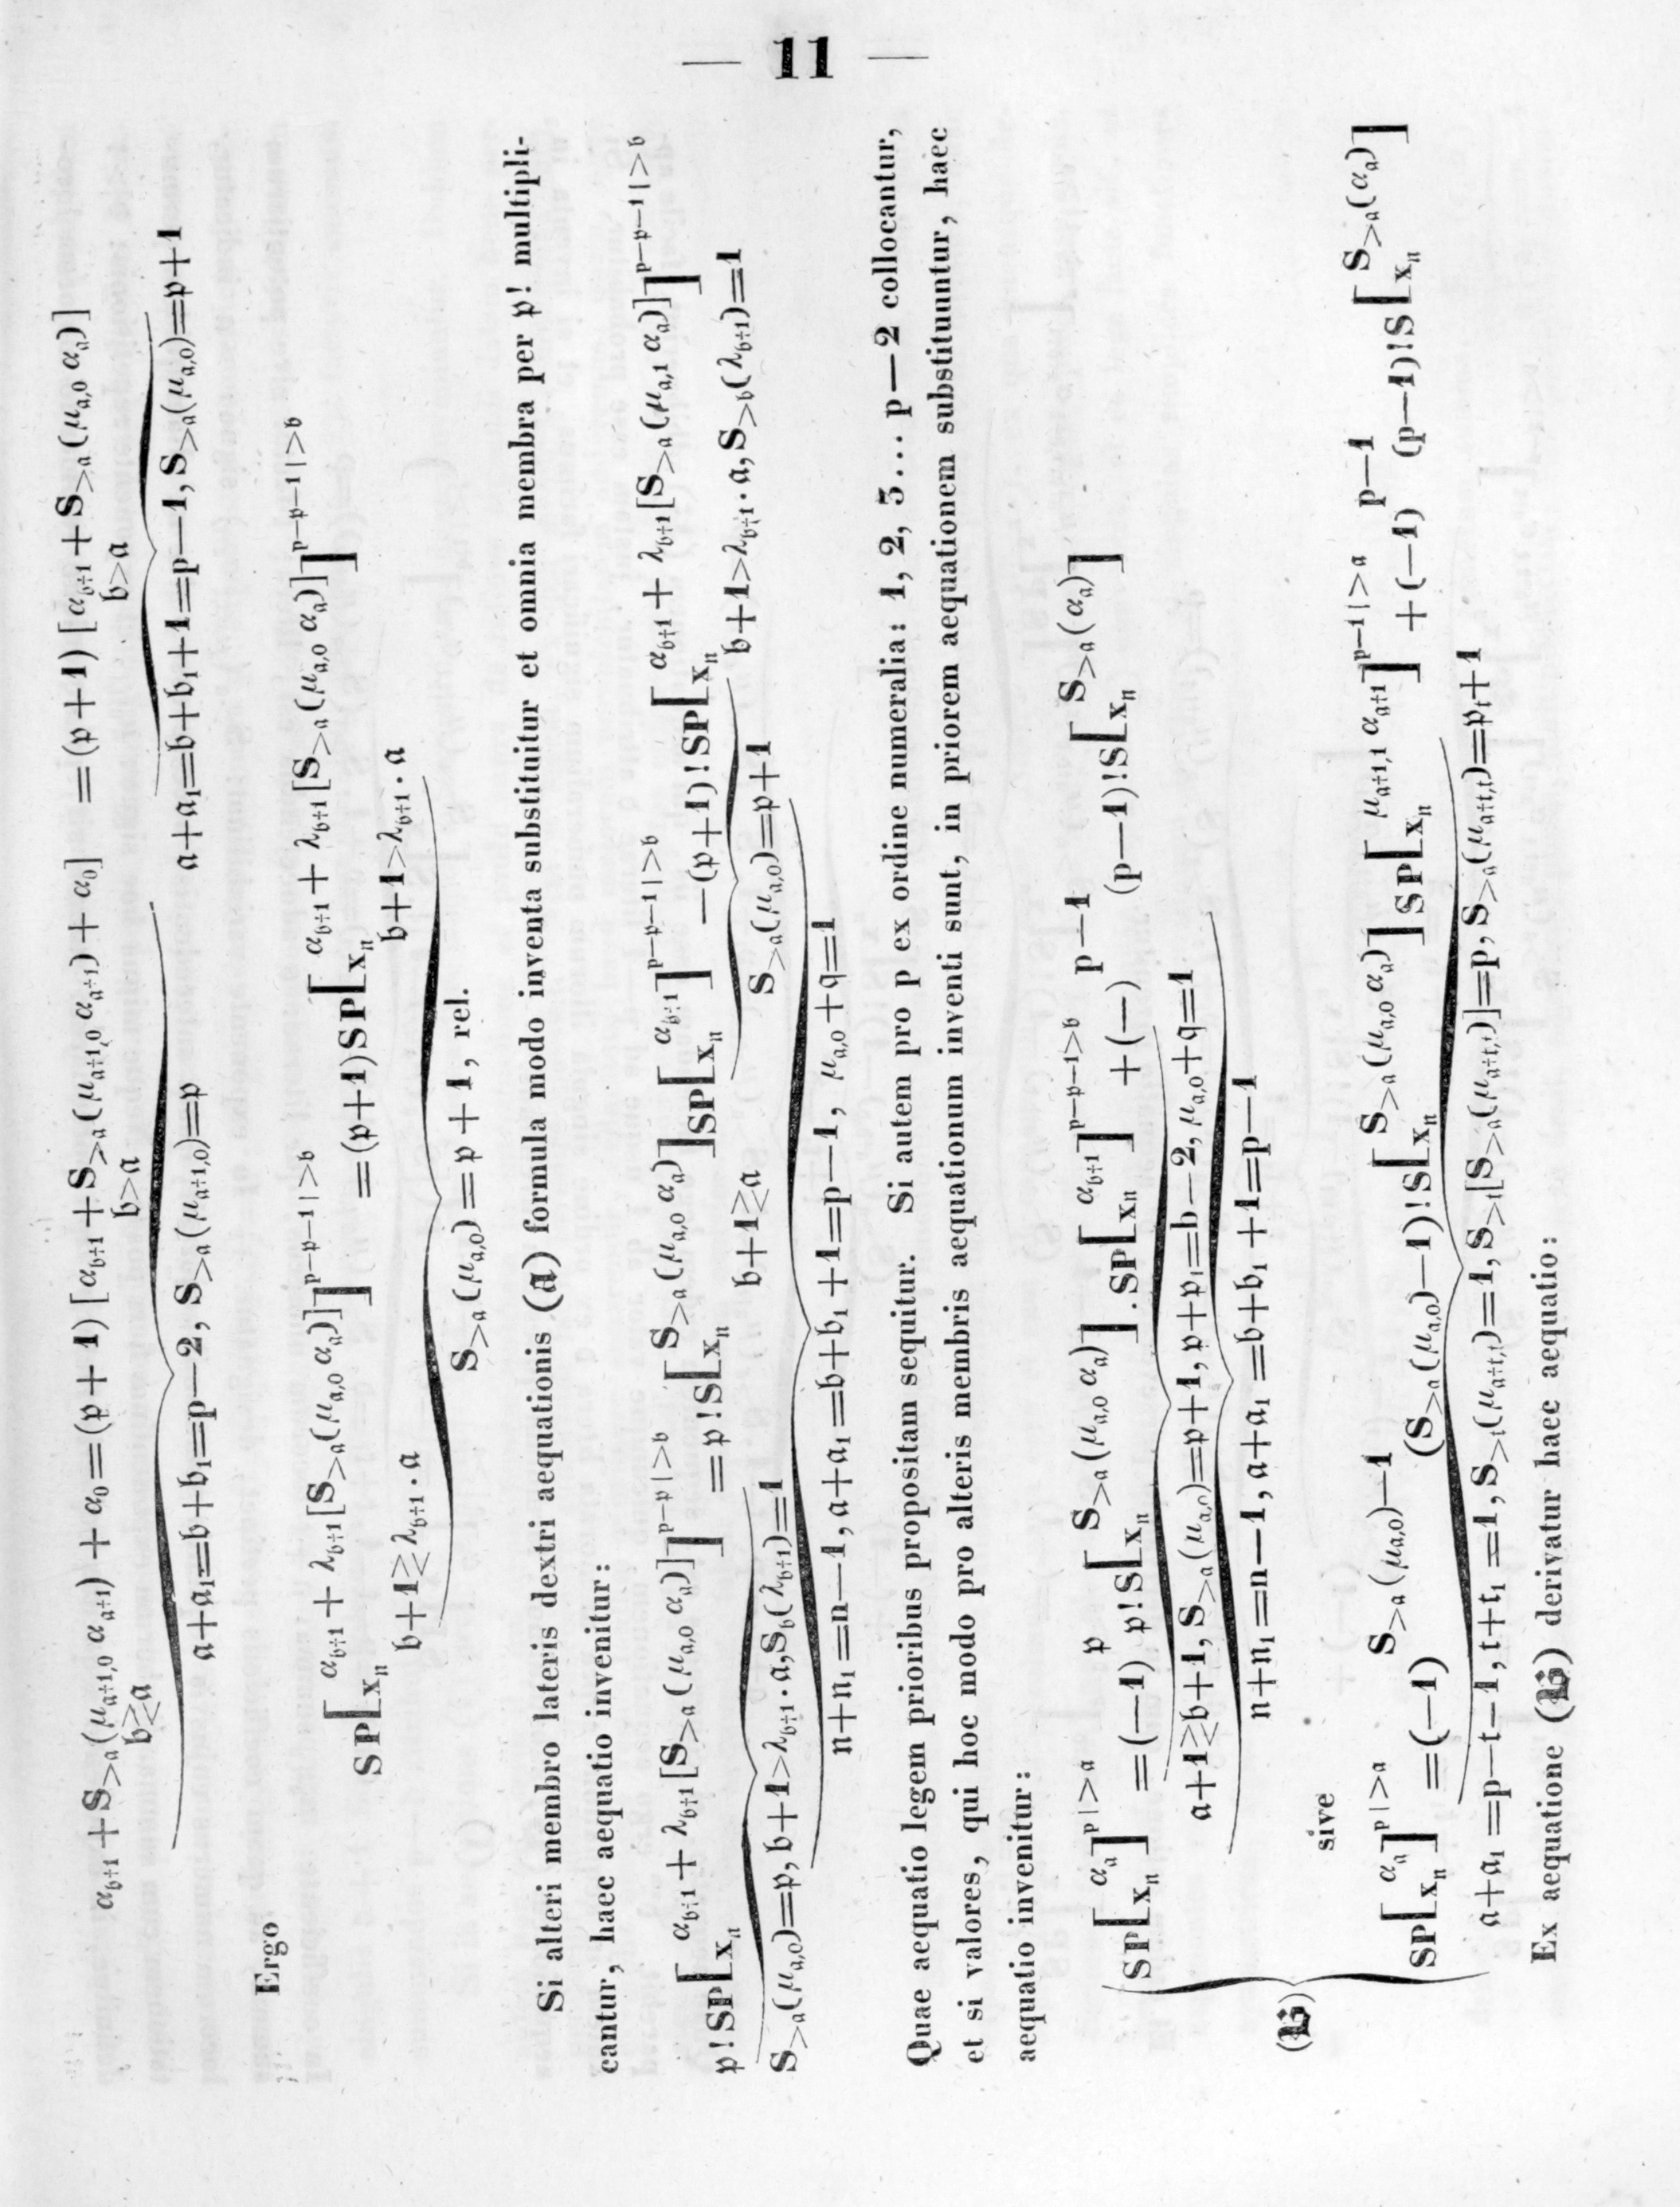 — 11 —
α_{𝔟+1} + S_{>a}(μ_{a+1,0} α_{a+1}) + α_0 = (𝔭+1) [α_{𝔟+1} + S_{>a}(μ_{a+1,0} α_{a+1}) + α_0] = (𝔭+1) [α_{𝔟+1} + S_{>a}(μ_{a,0} α_a)]
𝔟≥a 𝔟>a 𝔟>a
a+a₁=𝔟+𝔟₁=p—2, S_{>a}(μ_{a+1,0})=𝔭 a+a₁=𝔟+𝔟₁+1=p—1, S_{>a}(μ_{a,0})=𝔭+1
Ergo
SP[_{x_n}^{α_{𝔟+1} + λ_{𝔟+1}[S_{>a}(μ_{a,0} α_a)]}]^{p—𝔭—1|>𝔟} = (𝔭+1)SP[_{x_n}^{α_{𝔟+1} + λ_{𝔟+1}[S_{>a}(μ_{a,0} α_a)]}]^{p—𝔭—1|>𝔟}
𝔟+1≥λ_{𝔟+1}.a 𝔟+1>λ_{𝔟+1}.a
S_{>a}(μ_{a,0}) = 𝔭+1, rel.
Si alteri membro lateris dextri aequationis (𝔞) formula modo inventa substituitur et omnia membra per 𝔭! multipli-
cantur, haec aequatio invenitur:
𝔭!SP[_{x_n}^{α_{𝔟+1} + λ_{𝔟+1}[S_{>a}(μ_{a,0} α_a)]}]^{p—𝔭|>𝔟} = 𝔭!S[_{x_n}^{S_{>a}(μ_{a,0} α_a)}]SP[_{x_n}^{α_{𝔟+1}}]^{p—𝔭—1|>𝔟} —(𝔭+1)!SP[_{x_n}^{α_{𝔟+1} + λ_{𝔟+1}[S_{>a}(μ_{a,1} α_a)]}]^{p—𝔭—1|>𝔟}
S_{>a}(μ_{a,0})=𝔭, 𝔟+1>λ_{𝔟+1}.a, S_𝔟(λ_{𝔟+1})=1 𝔟+1≥a S_{>a}(μ_{a,0})=𝔭+1 𝔟+1>λ_{𝔟+1}.a, S_{>𝔟}(λ_{𝔟+1})=1
n+n₁=n—1, a+a₁=𝔟+𝔟₁+1=p—1, μ_{a,0}+q=1
Quae aequatio legem prioribus propositam sequitur. Si autem pro p ex ordine numeralia: 1, 2, 3... p—2 collocantur,
et si valores, qui hoc modo pro alteris membris aequationum inventi sunt, in priorem aequationem substituuntur, haec
aequatio invenitur:
SP[_{x_n}^{α_a}]^{p|>a} = (—1)^𝔭 𝔭!S[_{x_n}^{S_{>a}(μ_{a,0} α_a)}].SP[_{x_n}^{α_{𝔟+1}}]^{p—𝔭—1>𝔟} +(—)^{p—1} (p—1)!S[_{x_n}^{S_{>a}(α_a)}]
a+1≥𝔟+1, S_{>a}(μ_{a,0})=𝔭+1, 𝔭+𝔭₁=b—2, μ_{a,0}+q=1
n+n₁=n—1, a+a₁=𝔟+𝔟₁+1=p—1
(𝔅)
sive
SP[_{x_n}^{α_a}]^{p|>a} = (—1)^{S_{>a}(μ_{a,0})—1} (S_{>a}(μ_{a,0})—1)!S[_{x_n}^{S_{>a}(μ_{a,0} α_a)}]SP[_{x_n}^{μ_{a+1,1} α_{a+1}}]^{p—1|>a} +(—1)^{p—1} (p—1)!S[_{x_n}^{S_{>a}(α_a)}]
a+a₁=p—t—1, t+t₁=1, S_{>t}(μ_{a+t,t})=1, S_{>t}[S_{>a}(μ_{a+t,t})]=p, S_{>a}(μ_{a+t,t})=𝔭_t+1
Ex aequatione (𝔅) derivatur haec aequatio: